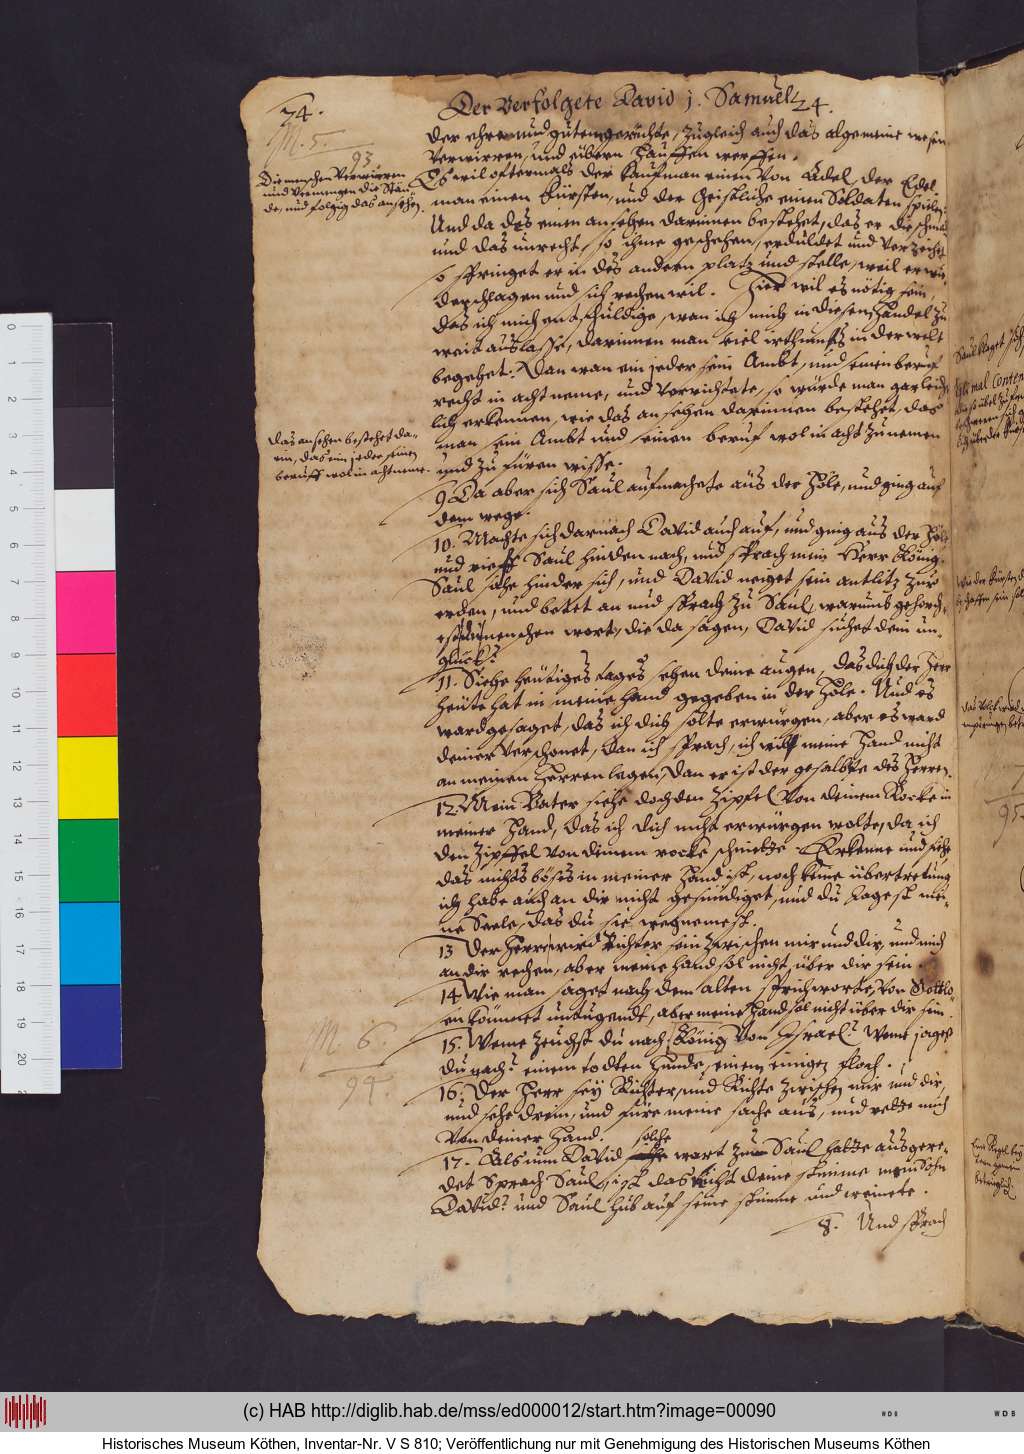 74.
Der Verfolgete David j. Samuel 24.
M. 5.
93.
der ehren und guten gerüchte, zugleich auch das algemeine wesen
verwirren, und übern hauffen werffen.
Die menschen verwirren
und vermengen die Stän-
de, und folgig das ansehen.
Es wil oftermals der Kaufman einen von Adel, der Edel-
man einen Fürsten, und der Geistliche einen Soldaten spielen.
Und da des einen ansehen darinnen bestehet, das er die schmach
und das unrecht, so ihme geschehen, erduldet und verzeihet
so springet er in des andern platz und stelle, weil er wie-
derschlagen und sich rechen wil. Hier wil es nötig sein,
das ich mich entschuldige, wan ich mich in diesen Handel zu
weit auslasse, darinnen man viel irthums in der welt
begehet. Dan wan ein jeder sein Ambt, und seinen beruf
recht in acht neme, und verrichtete, so würde man gar leich-
lich erkennen, wie das ansehen darinnen bestehet, das
man sein Ambt und seinen beruf wol in acht zu nemen
und zu füren wisse.
Das ansehen bestehet da-
rin, das ein jeder seinen
beruff wol in acht neme.
9 Da aber sich Saul aufmachete aus der Höle, und ging auf
dem wege.
10. Machte sich darnach David auch auf, und ging aus der Höle
und rieff Saul hinden nach, und sprach mein Herr König.
Saul sahe hinder sich, und David neiget sein antlitz zur
erden, und betet an und sprach zu Saul, warumb gehorch-
estu menschen wort, die da sagen, David suchet dein un-
glück?
11. Siehe heutiges tages sehen deine augen, das dich der Herr
heute hat in meine hand gegeben in der Höle. Und es
ward gesaget, das ich dich solte erwürgen, aber es ward
deiner verschonet, dan ich sprach, ich wil meine Hand nicht
an meinen Herren legen, dan er ist der gesalbte des Herren.
12. Mein Vater siehe doch den Zipfel von deinem Rocke in
meiner Hand, das ich dich nicht erwürgen wolte, da ich
den Zipffel von deinem rocke schneitte. Erkenne und siehe
das nichts böses in meiner Hand ist, noch keine übertretung
ich habe auch an dir nicht gesündiget, und du jagest mei-
ne Seele, das du sie wegnemest.
13 Der Herr wird Richter sein zwischen mir und dir, und mich
an dir rechen, aber meine hand sol nicht über dir sein.
14 Wie man saget nach dem alten sprichworte, von Gottlo-
sen kömmet untugendt, aber meine Hand sol nicht über dir sein.
M. 6.
94.
15. Weme zeuchst du nach König von Israel? Weme jagest
du nach? einem todten Hunde, einem einigen floch.
16. Der Herr sey Richter, und Richte zwischen mir und dir,
und sehe drein, und füre meine sache aus, und rette mich
von deiner Hand.
solche
17. Als nun David wort zu Saul hatte ausgere-
det Sprach Saul, ist das nicht deine stimme mein Sohn
David? und Saul hub auf seine stimme und weinete.
8. Und sprach
0 1 2 3 4 5 6 7 8 9 10 11 12 13 14 15 16 17 18 19 20
(c) HAB http://diglib.hab.de/mss/ed000012/start.htm?image=00090
WDB
WDB
Historisches Museum Köthen, Inventar-Nr. V S 810; Veröffentlichung nur mit Genehmigung des Historischen Museums Köthen